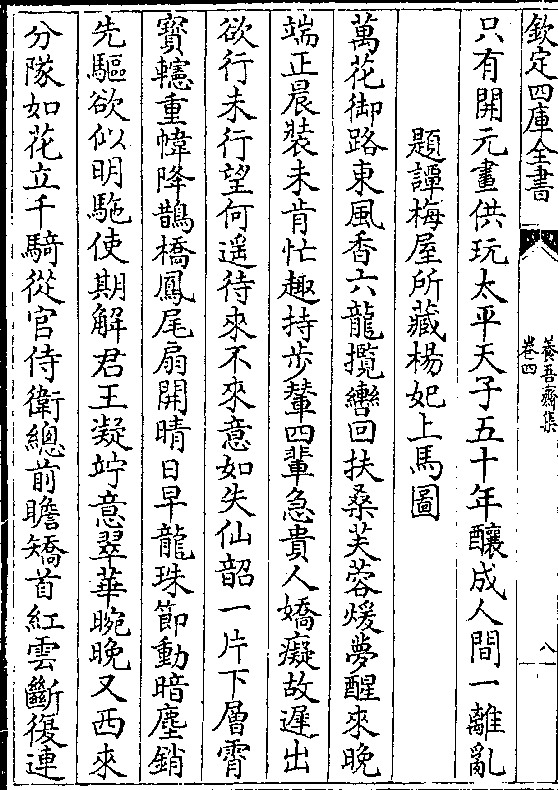 欽定四庫全書
養吾齋集
卷四
八
只有開元畫供玩太平天子五十年釀成人間一離亂
題譚梅屋所藏楊妃上馬圖
萬花御路東風香六龍攬轡回扶桑芙蓉煖夢醒來晚
端正晨裝未肯忙趣持步輦四輩急貴人嬌癡故遲出
欲行未行望何遥待來不來意如失仙韶一片下層霄
寳轙重幃降鵲橋鳳尾扇開晴日早龍珠節動暗塵銷
先驅欲似明駞使期解君王凝竚意翠華晼晚又西來
分隊如花立千騎從官侍衛總前瞻矯首紅雲斷復連